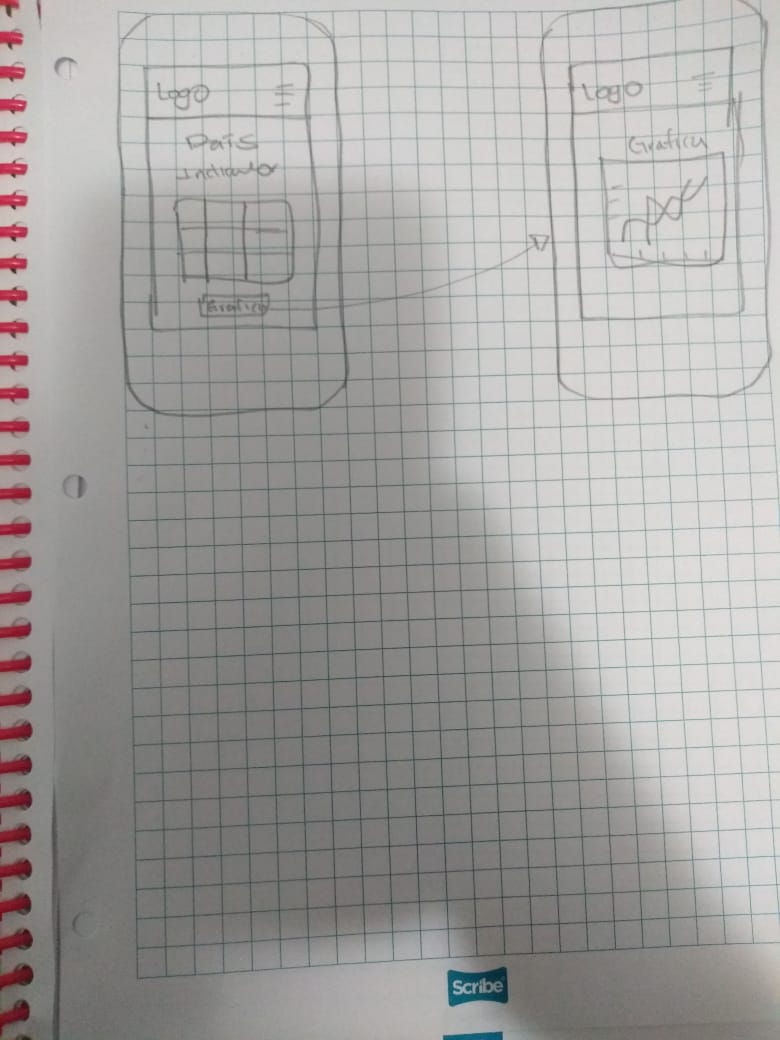 Logo
País
Indicador
Grafica
Logo
Grafica
Scribe